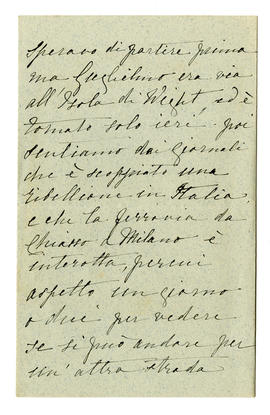 speravo di partire prima
ma Guglielmo era via
all'Isola di Wight, ed è
tornato solo ieri. poi
sentiamo dai giornali
che è scoppiato una
ribellione in Italia
e che la ferrovia da
Chiasso a Milano è
interotta, percui
aspetto un giorno
o due per vedere
se si può andare per
un'altra strada